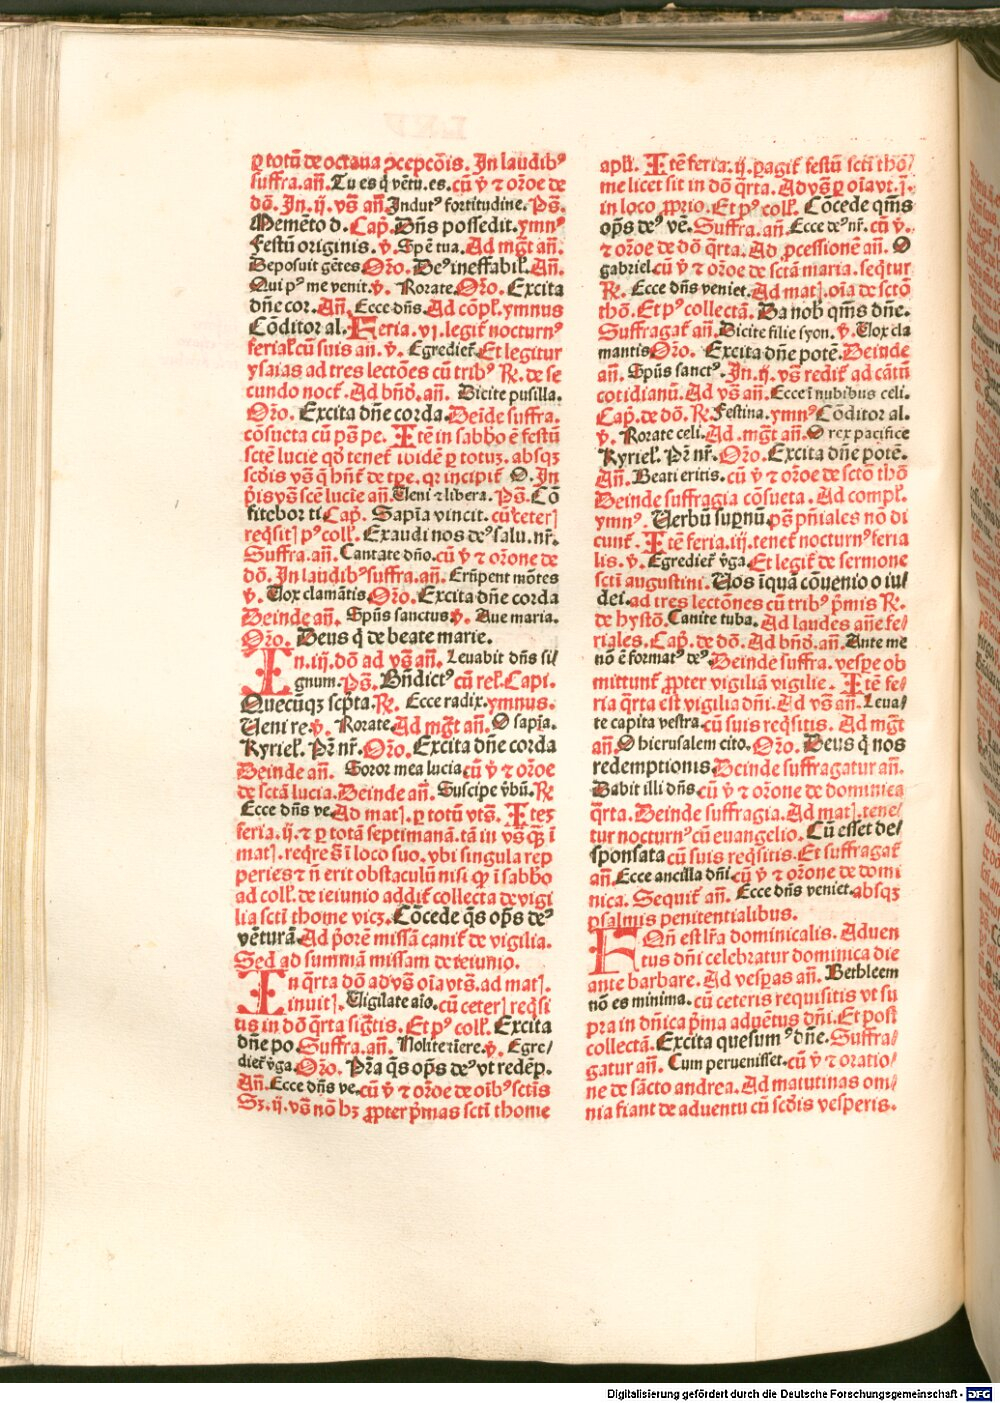 ꝑ totū de octaua ꝯcepcōis. In laudibꝰ
suffra. añ. Tu es q̇ vētu. es. cū v̇ ⁊ or̄oe de
dō. In .ij. vs̄ añ. Indutꝰ fortitudine. Ps̄.
Memēto d. Cap̄. Dn̄s possedit. ymnꝰ
Festū originis. v̇. Spē tua. Ad mḡt añ.
Deposuit gētes Or̄o. Deꝰ ineffabił. Añ.
Qui pꝰ me venit. v̇. Rorate. Or̄o. Excita
dn̄e cor. Añ. Ecce dn̄s. Ad cōpł. ymnus
Cōditor al. Feria. vj. legit̄ nocturnꝰ
feriał cū suis añ. v̇. Egredier̄. Et legitur
ysaias ad tres lectōes cū tribꝰ R̄. de se
cundo noct̄. Ad bn̄d. añ. Dicite pusilla.
Or̄o. Excita dn̄e corda. Deīde suffra.
cōsueta cū ps̄ pe. Itē in sabbo ē festū
sctē lucie qd̄ tenet̄ ibidē ꝑ totuꝫ. absqꝫ
scd̄is vs̄ q̄ hn̄t̄ de tꝑe. qr incipit̄ O. In
p̄is vs̄ scē lucie añ. Veni ⁊ libera. Ps̄. Cō
fitebor ti. Cap̄. Sapīa vincit. cū ceterꝭ
reqͥsitꝭ pꝰ colł. Exaudi nos deꝰ salu. nr̄.
Suffra. añ. Cantate dn̄o. cū v̇ ⁊ or̄one de
dō. In laudibꝰ suffra. añ. Erūpent mōtes
v̇. Vox clamātis. Or̄o. Excita dn̄e corda
Deinde añ. Spūs sanctus. v̇. Aue maria.
Or̄o. Deus q̇ de beate marie.
In .iij. dō ad vs̄ añ. Leuabit dn̄s si/
gnum. Ps̄. Bn̄dictꝰ cū rel̄. Capi.
Quecūqꝫ scp̄ta. R̄. Ecce radix. ymnus.
Veni re. v̇. Rorate. Ad mḡt añ. O sapīa.
Kyrieł. Pr̄ nr̄. Or̄o. Excita dn̄e corda
Deinde añ. Soror mea lucia. cū v̇ ⁊ or̄oe
de sctā lucia. Deinde añ. Suscipe v̄bū. R̄
Ecce dn̄s ve. Ad matꝭ. ꝑ totū vts̄. Iteꝫ
feria. ij. ⁊ ꝑ totā septimanā. tā in vs̄ qꝫ ī
matꝭ. reqͥre s̄ ī loco suo. vbi singula rep
peries ⁊ n̄ erit obstaculū nisi qꝫ ī sabbo
ad colł. de ieiunio addit̄ collecta de vigi
lia sctī thome vicꝫ. Cōcede q̄s op̄s deꝰ
vēturā. Ad p̄orē missā canit̄ de vigilia.
Sed ad summā missam de ieiunio.
In q̄rta dō ad vs̄ añ oīa vts̄. ad matꝭ.
inuitꝭ. Vigilate aīo. cū ceterꝭ reqͥsi
tis in dō q̄rta sigt̄is. Et pꝰ colł. Excita
dn̄e po. Suffra. añ. Nolite tīere. v̇. Egre/
dier̄ v̇ga. Or̄o. Pr̄a q̄s op̄s deꝰ vt redēp.
Añ. Ecce dn̄s ve. cū v̇ ⁊ or̄oe de oībꝰ sctīs
Sꝫ. ij. vs̄ nō hꝫ ꝓpter p̄mas sctī thome
apłi. Itē feria. ij. ꝑagit̄ festū sctī tho/
me licet sit in dō q̄rta. Ad vs̄ ꝑ oīa vt. j.
in loco ꝓprio. Et pꝰ colł. Cōcede qm̄s
op̄s deꝰ vē. Suffra. añ. Ecce deꝰ nr̄. cū v̇.
⁊ or̄oe de dō q̄rta. Ad ꝓcessionē añ. O
gabriel. cū v̇ ⁊ or̄oe de sctā maria. seqͥtur
R̄. Ecce dn̄s veniet. Ad matꝭ. oīa de sctō
thō. Et pꝰ collectā. Da nob̄ qm̄s dn̄e.
Suffragat̄ añ. Dicite filie syon. v̇. Vox cla
mantis Or̄o. Excita dn̄e potē. Deinde
añ. Spūs sanctꝰ. In .ij. vs̄ redit̄ ad cātū
cotidianū. Ad vs̄ añ. Ecce ī nubibus celi.
Cap̄. de dō. R̄. Festina. ymnꝰ Cōditor al.
v̇. Rorate celi. Ad .mḡt añ. O rex pacifice
Kyrieł. Pr̄ nr̄. Or̄o. Excita dn̄e potē.
Añ. Beati eritis. cū v̇ ⁊ or̄oe de sctō thō
Deinde suffragia cōsueta. Ad compł.
ymnꝰ. Verbū sup̄nū. ps̄ pn̄iales nō di
cunt̄. Itē feria. iij. tenet̄ nocturnꝰ feria
lis. v̇. Egredier̄ v̇ga. Et legit̄ de sermone
sctī augustini. Vos īquā cōuenio o iu/
dei. ad tres lectōnes cū tribꝰ p̄mis R̄.
de hystō. Canite tuba. Ad laudes añe fe/
riales. Cap̄. de dō. Ad bn̄d. añ. Ante me
nō ē formatꝰ deꝰ. Deinde suffra. vesp̄e ob
mittunt̄ ꝓpter vigiliā vigilie. Itē fe/
ria q̄rta est vigilia dn̄i. Ad vs̄ añ. Leua/
te capita vestra. cū suis reqͥsitis. Ad mḡt
añ. O hierusalem cito. Or̄o. Deus q̇ nos
redemptionis. Deinde suffragatur añ.
Dabit illi dn̄s. cū v̇ ⁊ or̄one de dominica
q̄rta. Deinde suffragia. Ad matꝭ. tene/
tur nocturnꝰ cū euangelio. Cū esset de/
sponsata cū suis reqͥsitis. Et suffragat̄
añ. Ecce ancilla dn̄i. cū v̇ ⁊ or̄one de domi
nica. Sequit̄ añ. Ecce dn̄s veniet. absqꝫ
psalmis penitentialibus.
F Qn̄ est lr̄a dominicalis. Aduen
tus dn̄i celebratur dominica die
ante barbare. Ad vesp̄as añ. Bethleem
nō es minima. cū ceteris requisitis vt su
pra in dn̄ica p̄ma aduētus dn̄i. Et post
collectā. Excita quesumꝰ dn̄e. Suffra/
gatur añ. Cum peruenisset. cū v̇ ⁊ oratio/
ne de sācto andrea. Ad matutinas om/
nia fiant de aduentu cū scd̄is vesperis.
Digitalisierung gefördert durch die Deutsche Forschungsgemeinschaft - DFG